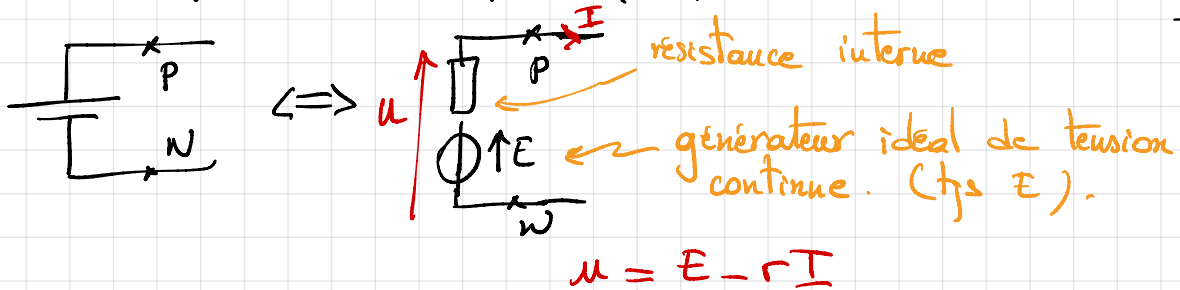 I
P
P
résistance interne
⇐⇒
u
N
E
générateur idéal de tension
continue. (tjs E).
N
u = E - rI